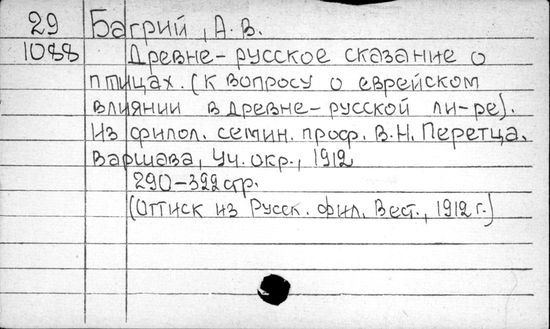 29 Багрий, А. В.
1088 Древне-русское сказание о
птицах. (К вопросу о еврейском
влиянии в древне-русской ли-ре).
Из филол. семин. проф. В. Н. Перетца.
Варшава, Уч. окр., 1912
290-322 стр.
(Оттиск из Русск. фил. Вест., 1912 г.)